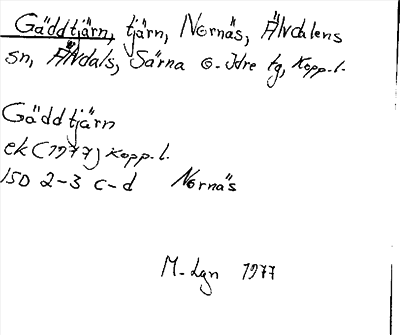 Gäddtjärn, tjärn, Nornäs, Älvdalens
sn, Älvdals, Särna o. Idre tg, Kopp.l.
Gäddtjärn
ek (1977) Kopp.l.
15D 2-3 c-d Nornäs
M-Lgn 1977